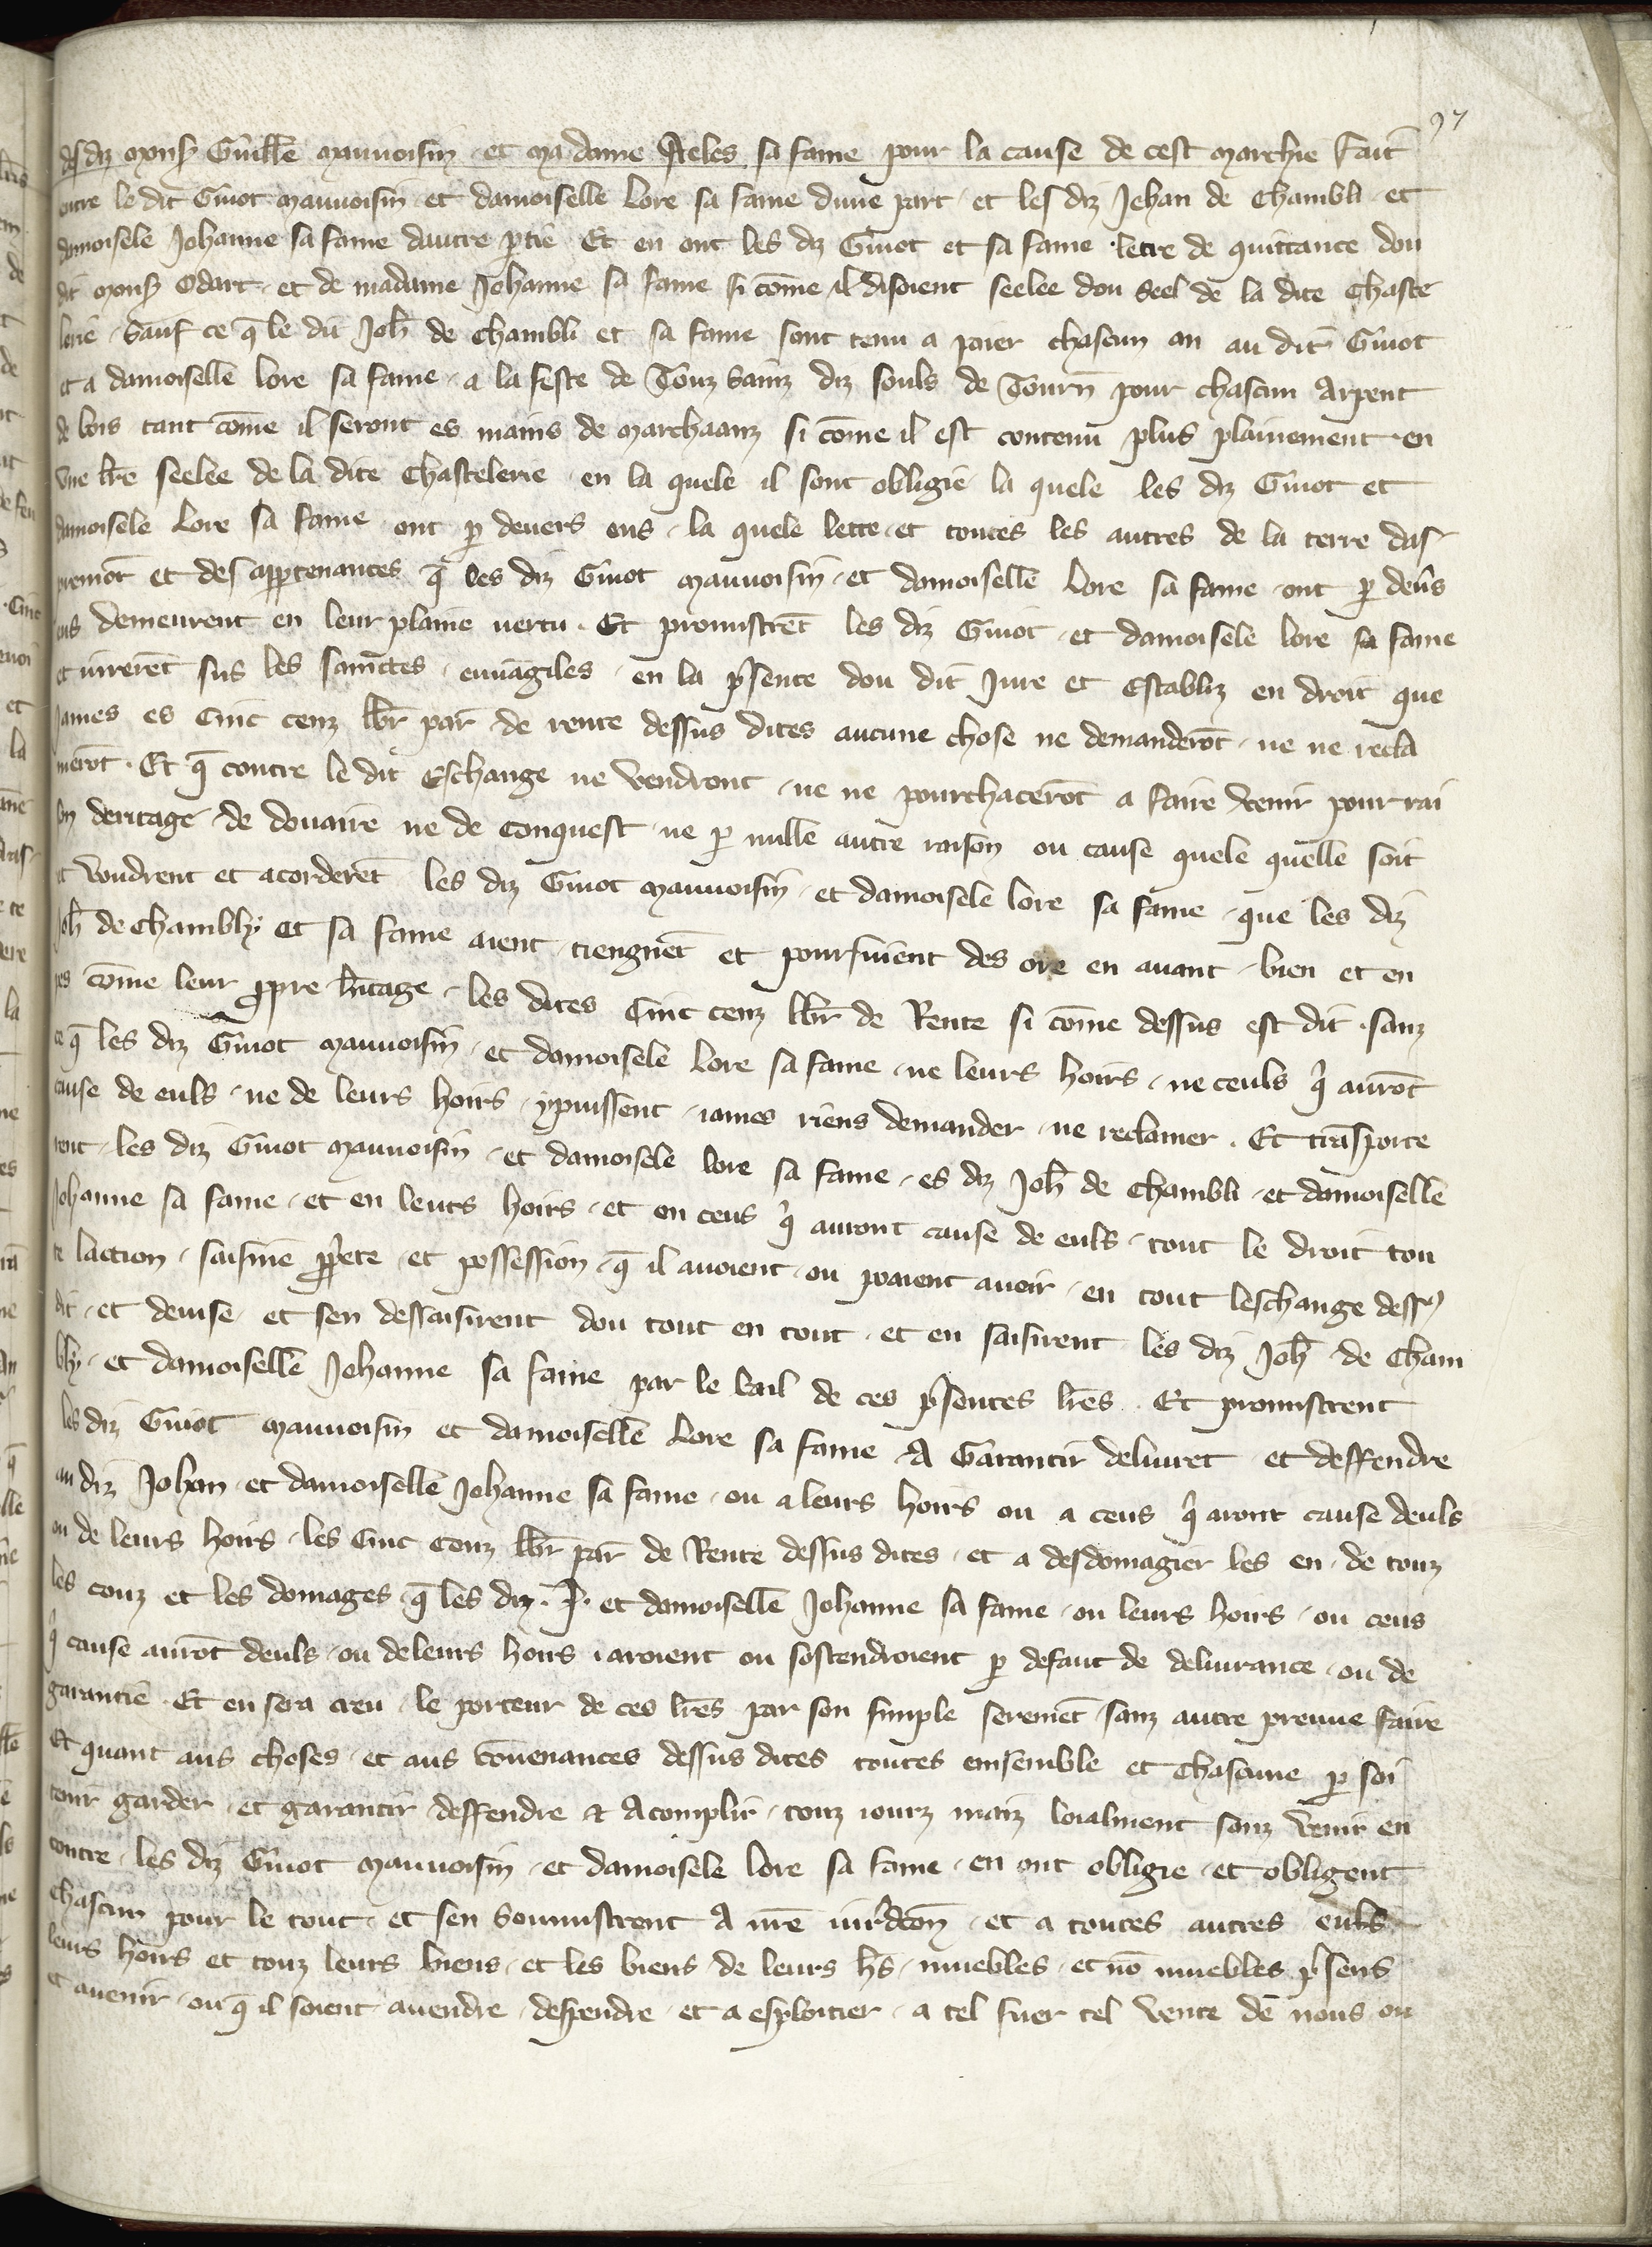 97
desdiz mons᷎ Guill̃e mauuoisin · et madame Ateles sa fame pour la cause de cest marchie fait
entre le dit Guiot mauuoisin · et damoiselle Lore sa fame dune part · et les diz Jehan de Chambli · et
damoisele Johanne sa fame dautre ꝑtie Et en ont les diz Guiot et sa fame · letre de quittance dou
dit mons᷎ Odart · et de madame Johanne sa fame si cõme il disoient seelee dou seel de la dite Chaste
lerie · Sauf ce q̃ le dit Joh̃ de Chambli et sa fame sont tenu a paier chascun an au dit Guiot
et a damoiselle lore sa fame · a la feste de Touz sainz diz souls de Tourñ pour chascun Arpent
de bois tant cõme il seront es mains de marchaanz si cõme il est contenu plus plainement · en
vne lr̃e seelee de la dite Chastelerie · en la quele il sont obligie la quele les diz Guiot et
damoisele Lore sa fame · ont ꝑ deuers eus · la quele lettre · et toutes les autres de la terre das
premõt et des apꝑtenances q̃ les diz Guiot mauuoisin · et damoiselle Lore sa fame · ont ꝑ deũs
eus demeurent en leur plaine uertu · Et promistrẽt les diz Guiot · et damoisele lore sa fame
et iurerẽt sus les sainctes · euuãgiles · en la p̃sence dou dit Jure et establiz en droit que
iames es Cinc cenz lb̃r par̃ de rente dessus dites aucune chose ne demanderõt · ne ne recla
merõt · Et q̃ contre le dit Eschange ne vendront · ne ne pourchacerõt a faire venir pour rai
son deritage · de douaire ne de Conquest · ne ꝑ nulle autre raison ou cause quele quelle soit
et voudrent et acorderẽt les diz Guiot mauuoisin · et damoisele lore sa fame · que les diz
Joh̃ de Chambly · et sa fame aient · tiengnẽt et poursuient des ore en auant · bien et en
pes cõme leur ꝓpre h̃itage · les dites Cinc cenz lb̃r de Rente si cõme dessus est dit · sanz
ce q̃ les diz Guiot mauuoisin · et damoisele Lore sa fame · ne leurs hoirs · ne ceuls q̃ aurõt
cause de euls · ne de leurs hoirs · ypuissent · iames riens demander · ne reclamer · Et trãsporte
rent · les diz Guiot mauuoisin · et damoisele lore sa fame · es diz Joh̃ de Chambli · et damoiselle
Johanne sa fame · et en leurs hoirs · et en ceus q̃ auront cause de euls · tout le droit tou
te laction · saisine ꝓp̃ete · et possession · q̃ il auoient · ou pooient auoir · en tout leschange dess᷎
dit · et deuise · et sen dessaisirent dou tout en tout · et en saisirent les diz Joh̃ de Cham
bly · et damoiselle Johanne sa fame par le bail de ces p̃sentes lr̃es · Et promistrent
les diz Guiot mauuoisin et damoiselle Lore sa fame A Garantir deliurer et deffendre
au diz Johan · et damoiselle Johanne sa fame · ou a leurs hoirs ou a ceus q̃ aront cause deuls
ou de leurs hoirs · les Cinc Cenz lb̃r par̃ de Rente dessus dites · et a desdomagier les en · de touz
les couz et les domages · q̃ les diz · J · et damoiselle Johanne sa fame · ou leurs hoirs · ou ceus
q̃ cause aurõt deuls · ou deleurs hoirs iaroient ou sostendroient ꝑ defaut de deliurance · ou de
garantie · Et en sera creu · le porteur de ces lr̃es par son simple seremẽt · sanz autre preuue faire
Et quant aus choses · et aus cõuenances dessus dites toutes ensemble et chascune ꝑ soi
tenir garder · et garantir deffendre & Acomplir · touz iourz maiz loialment sanz venir en
contre · les diz Guiot mauuoisin · et damoisele lore sa fame · en ont obligie · et obligent
chascun pour le tout · et sen soumistrent A nr̃e iur̃dicõn · et a toutes autres euls
leurs hoirs et touz leurs biens · et les biens de leurs h̃s · muebles · et nõ muebles p̃sens
et auenir · ou q̃ il soient auendre · despendre · et a esploitier · a tel fuer tel vente de nous ou